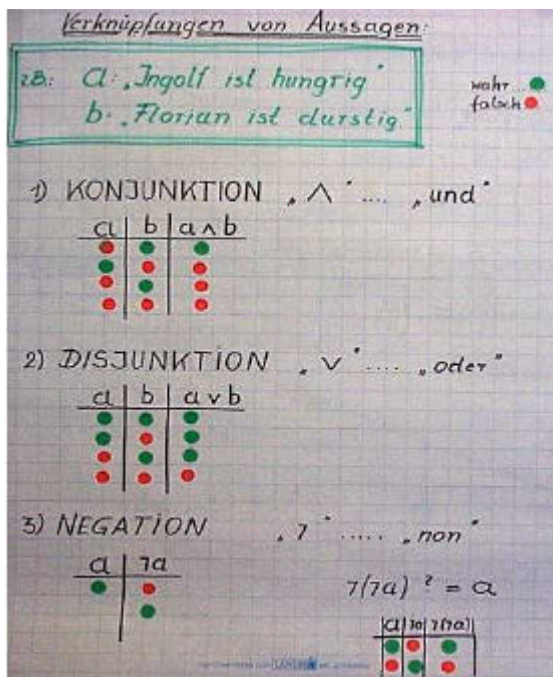 Verknüpfungen von Aussagen:
zB.: a: „Ingolf ist hungrig"
b: „Florian ist durstig"
wahr...
falsch
1) KONJUNKTION „∧" .... „und"
a b a ∧ b
2) DISJUNKTION „∨" .... „oder"
a b a ∨ b
3) NEGATION „7" ..... „non"
a 7a
7(7a) ? = a
a 7a 7(7a)